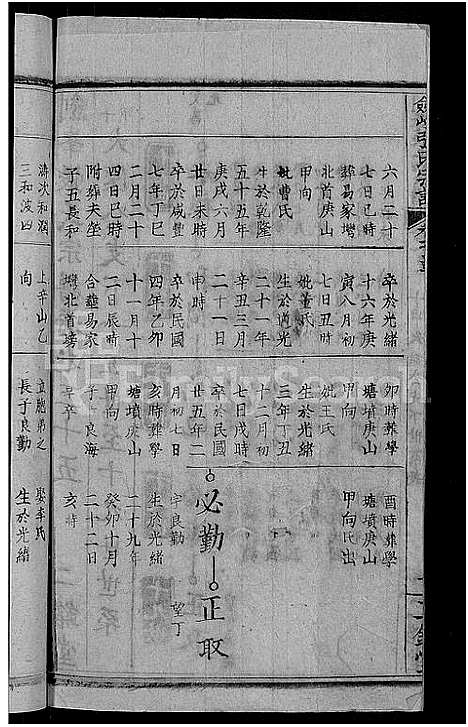 張氏宗譜
六月二十
七日巳時
葬易家塆
北首庚山
甲向
妣曹氏
生於乾隆
五十五年
庚戌六月
廿日未時
卒於咸豐
七年丁巳
二月二十
四日巳時
附葬夫塋
子五長和
濟次和潤
三和波四
卒於光緒
十六年庚
寅八月初
七日丑時
妣黃氏
生於道光
二十一年
辛丑三月
二十一日
申時
卒於民國
四年乙卯
十一月十
二日辰時
合葬易家
塆北首塋
上辛山乙
向
卯時葬學
塘墳庚山
甲向
妣王氏
生於光緒
三年丁丑
十二月初
七日戌時
卒於民國
廿五年二
月初七日
亥時葬學
塘墳庚山
甲向
子一良海
早卒
立胞弟之
長子良勤
酉時葬學
塘墳庚山
甲向氏出
必勤
正取
望丁
字良勤
生於光緒
二十九年
癸卯十月
二十二日
亥時
娶李氏
生於光緒